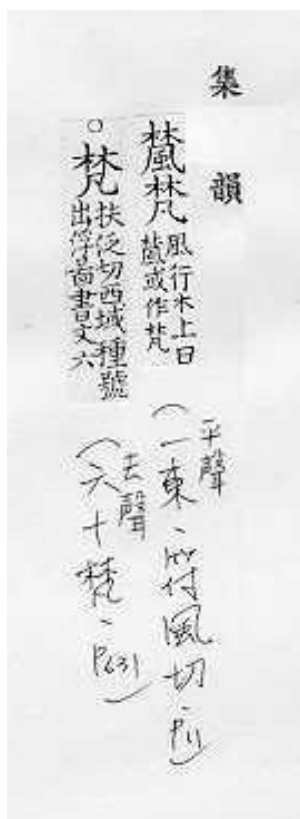 集韻
檒梵
風行木上曰
檒或作梵
平聲
(一東、符風切、P11)
○梵
扶泛切西域種號
出浮啚書文六
去聲
(六十梵、P631)